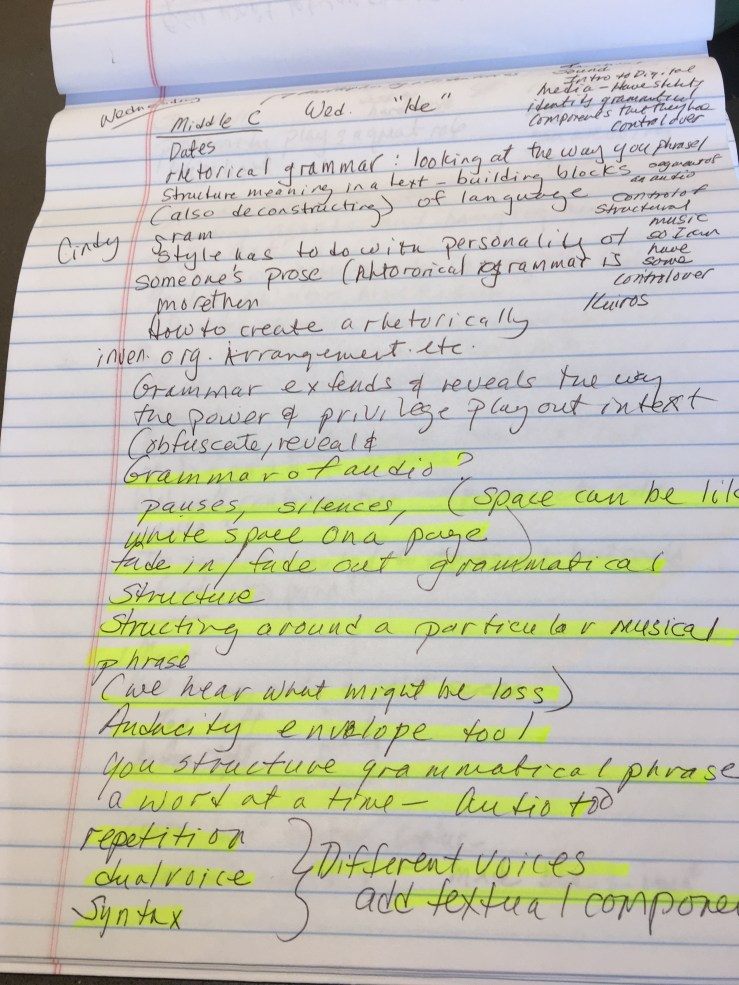 Wednesday
Middle C Wed. "He"
Sound
Intro to Digital
Media - Have
identify grammatical
Components that they have
control over
Dates
rhetorical grammar: looking at the way you phrase/
Structure meaning in a text - building blocks
(also deconstructing) of language
segments of
an audio
control of
Structural
music
so I can
have
some
control over
Kairos
Cindy
Style has to do with personality of
someone's prose (Rhetorical grammar is
morethen
How to create a rhetorically
inven. org. Arrangement. etc.
Grammar extends & reveals the way
the power & privilege play out in text
(obfuscate, reveal &
Grammar of audio?
pauses, silences, (space can be lik
white space on a page
fade in/fade out grammatical
Structure
Structing around a particular musical
phrase
(we hear what might be loss)
Audacity envelope tool
you structure grammatical phrase
a word at a time - Audio too
repetition
dual voice
Syntax
Different voices
add textual compone